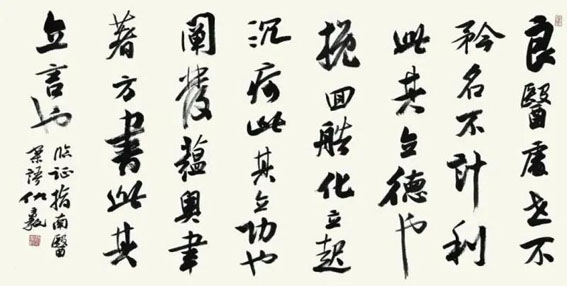 良醫處世不
矜名不計利
此其立德也
挽回艁化立起
沉疴此其立功也
闡發蘊奧聿
著方書此其
立言也
临证指南醫
案語